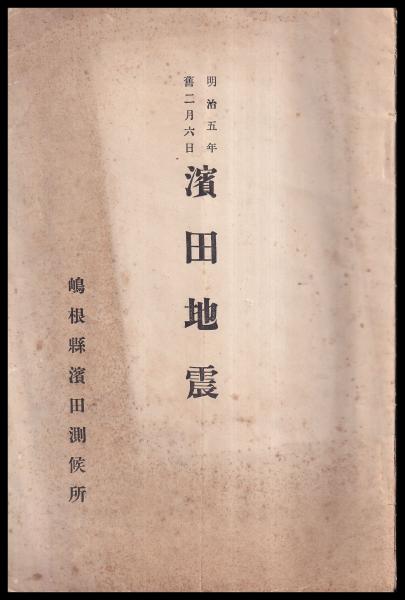 明治五年
舊二月六日
濱田地震
嶋根縣濱田測候所